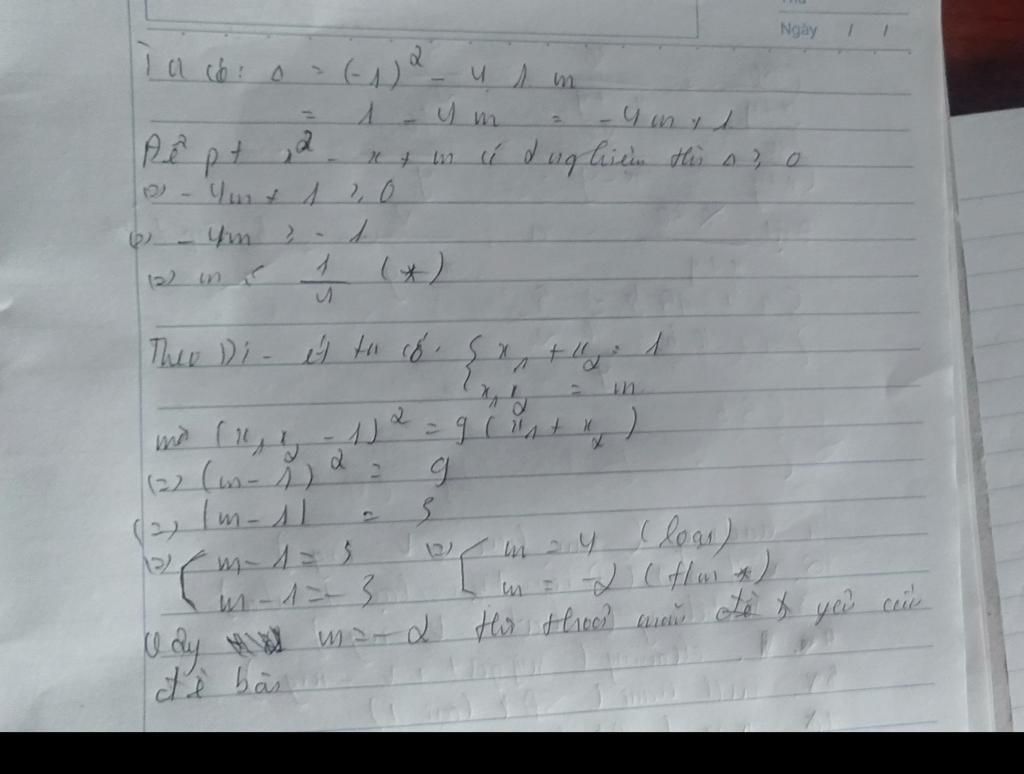 Ngày / /
Ta có: Δ = (-1)² - 4 1 m
= 1 - 4m = -4m + 1
Để pt x² - x + m có 2 nghiệm thì Δ ≥ 0
(=) -4m + 1 ≥ 0
(=) -4m ≥ -1
(=) m ≤ 1/4 (*)
Theo Vi-ét ta có: { x₁ + x₂ = 1
x₁x₂ = m
mà (x₁x₂ - 1)² = 9(x₁ + x₂)
(=) (m - 1)² = 9
(=) |m - 1| = 3
(=) [ m - 1 = 3 (=) [ m = 4 (loại)
m - 1 = -3 m = -2 (t/m *)
Vậy m = -2 thì thoả mãn yêu cầu
đề bài